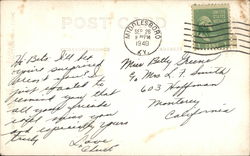 POST CARD
MIDDLESBORO
SEP 28
PM
1949
KY.
Hi Bets. I'll be
quite surprised
just wanted to
remind you that
all your friends
miss you
and especially yours
truly
Love
Chuck
Miss Betty Greene
℅ Mrs L. T. Smith
603 Hoffman
Monterey
California